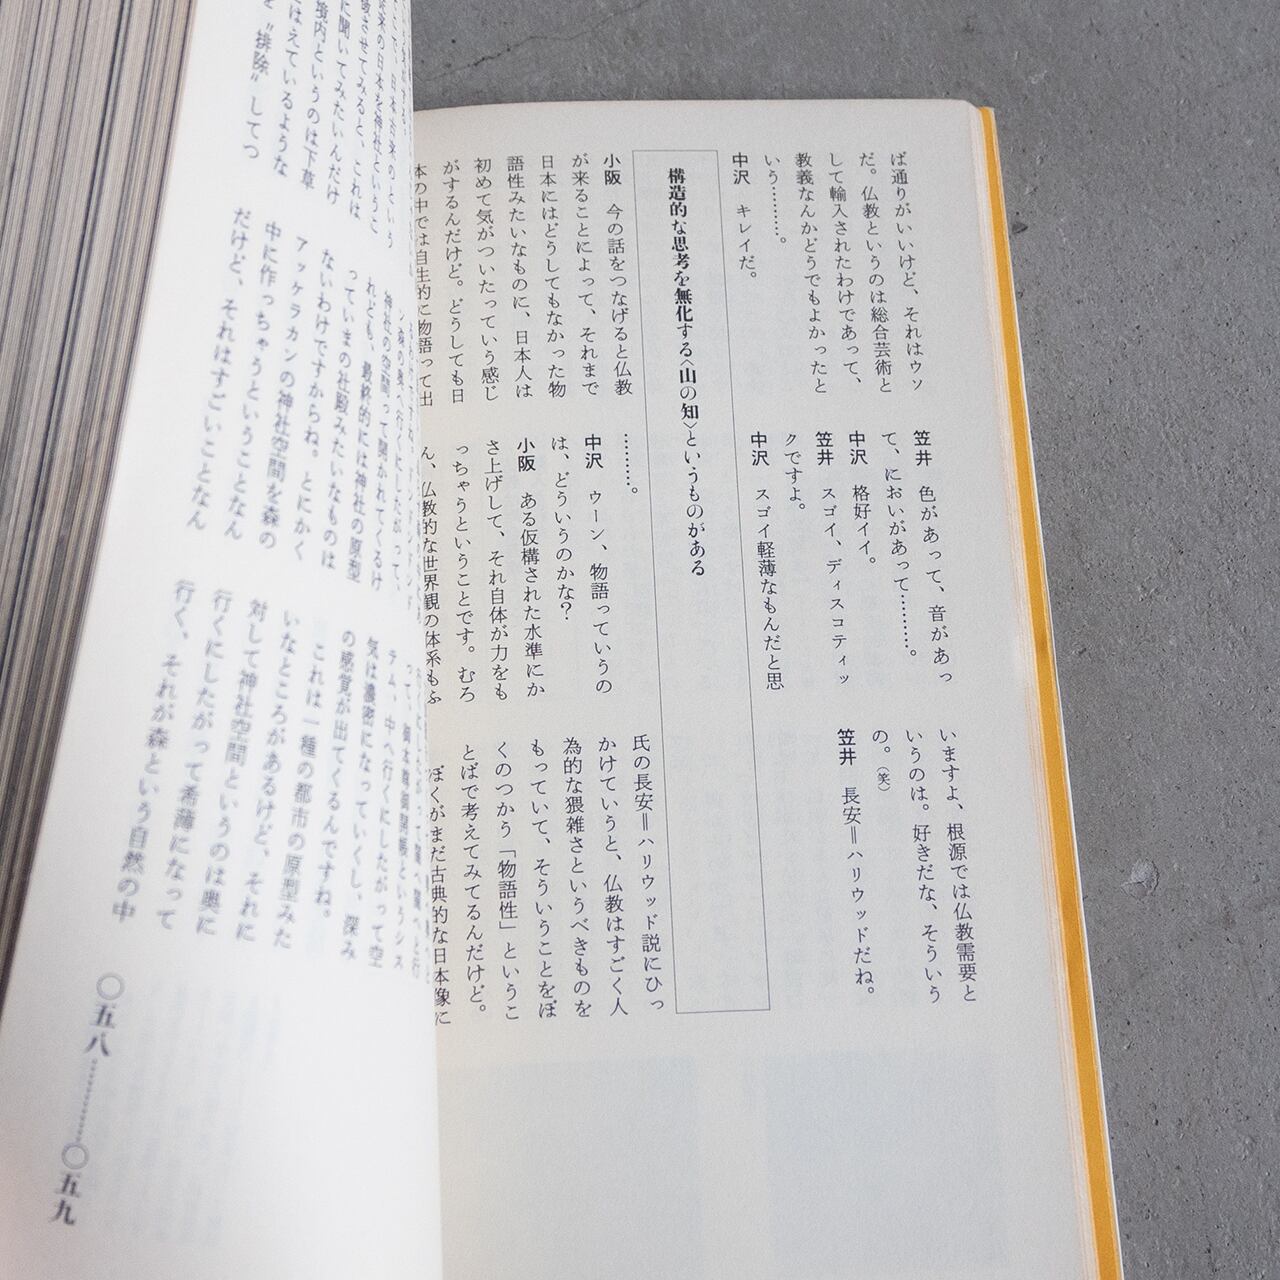 ば通りがいいけど、それはウソ
だ。仏教というのは総合芸術と
して輸入されたわけであって、
教義なんかどうでもよかったと
いう…………。
中沢　キレイだ。
笠井　色があって、音があっ
て、においがあって…………。
中沢　格好イイ。
笠井　スゴイ、ディスコティッ
クですよ。
中沢　スゴイ軽薄なもんだと思
いますよ、根源では仏教需要と
いうのは。好きだな、そういう
の。（笑）
笠井　長安＝ハリウッドだね。
構造的な思考を無化する〈山の知〉というものがある
小阪　今の話をつなげると仏教
が来ることによって、それまで
日本にはどうしてもなかった物
語性みたいなものに、日本人は
初めて気がついたっていう感じ
がするんだけど。どうしても日
本の中では自生的に物語って出
…………。
中沢　ウーン、物語っていうの
は、どういうのかな？
小阪　ある仮構された水準にか
さ上げして、それ自体が力をも
っちゃうということです。むろ
ん、仏教的な世界観の体系もふ
氏の長安＝ハリウッド説にひっ
かけていうと、仏教はすごく人
為的な猥雑さというべきものを
もっていて、そういうことをぼ
くのつかう「物語性」というこ
とばで考えてみてるんだけど。
ぼくがまだ古典的な日本像に
従来の日本を神社というこ
させてみると、これは
に聞いてみたいんだけ
境内というのは下草
はえているような
を〝排除〟してつ
神社の空間って開かれてくるけ
れども、最終的には神社の原型
っていまの社殿みたいなものは
ないわけですからね。とにかく
アッケラカンの神社空間を森の
中に作っちゃうということなん
だけど、それはすごいことなん
って、御本尊御開帳というシス
テム、中へ行くにしたがって空
気は濃密になっていくし、深み
の感覚が出てくるんですね。
これは一種の都市の原型みた
いなところがあるけど、それに
対して神社空間というのは奥に
行くにしたがって希薄になって
行く、それが森という自然の中
〇五八…………〇五九